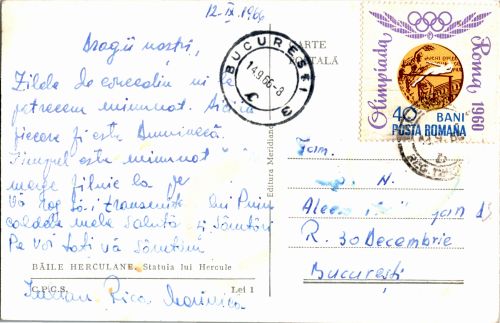 12-IX-1966
Dragii noștri,
Zilele de concediu ni le
petrecem minunat. Aici în
fiecare zi este Duminecă.
Timpul este minunat
merge zilnic la
Vă rog să-i transmiteți lui Puiu
caldele mele salutări și sărutări
Pe voi toți vă sărutăm
BĂILE HERCULANE. Statuia lui Hercule
C.P.C.S. Lei 1
Rica
CARTE
POSTALĂ
Editura Meridiane
BUCUREȘTI
14.9.66-8
Olimpiada Roma 1960
40 BANI
POSTA ROMANA
Fam.
N.
Aleea
R. 30 Decembrie
București